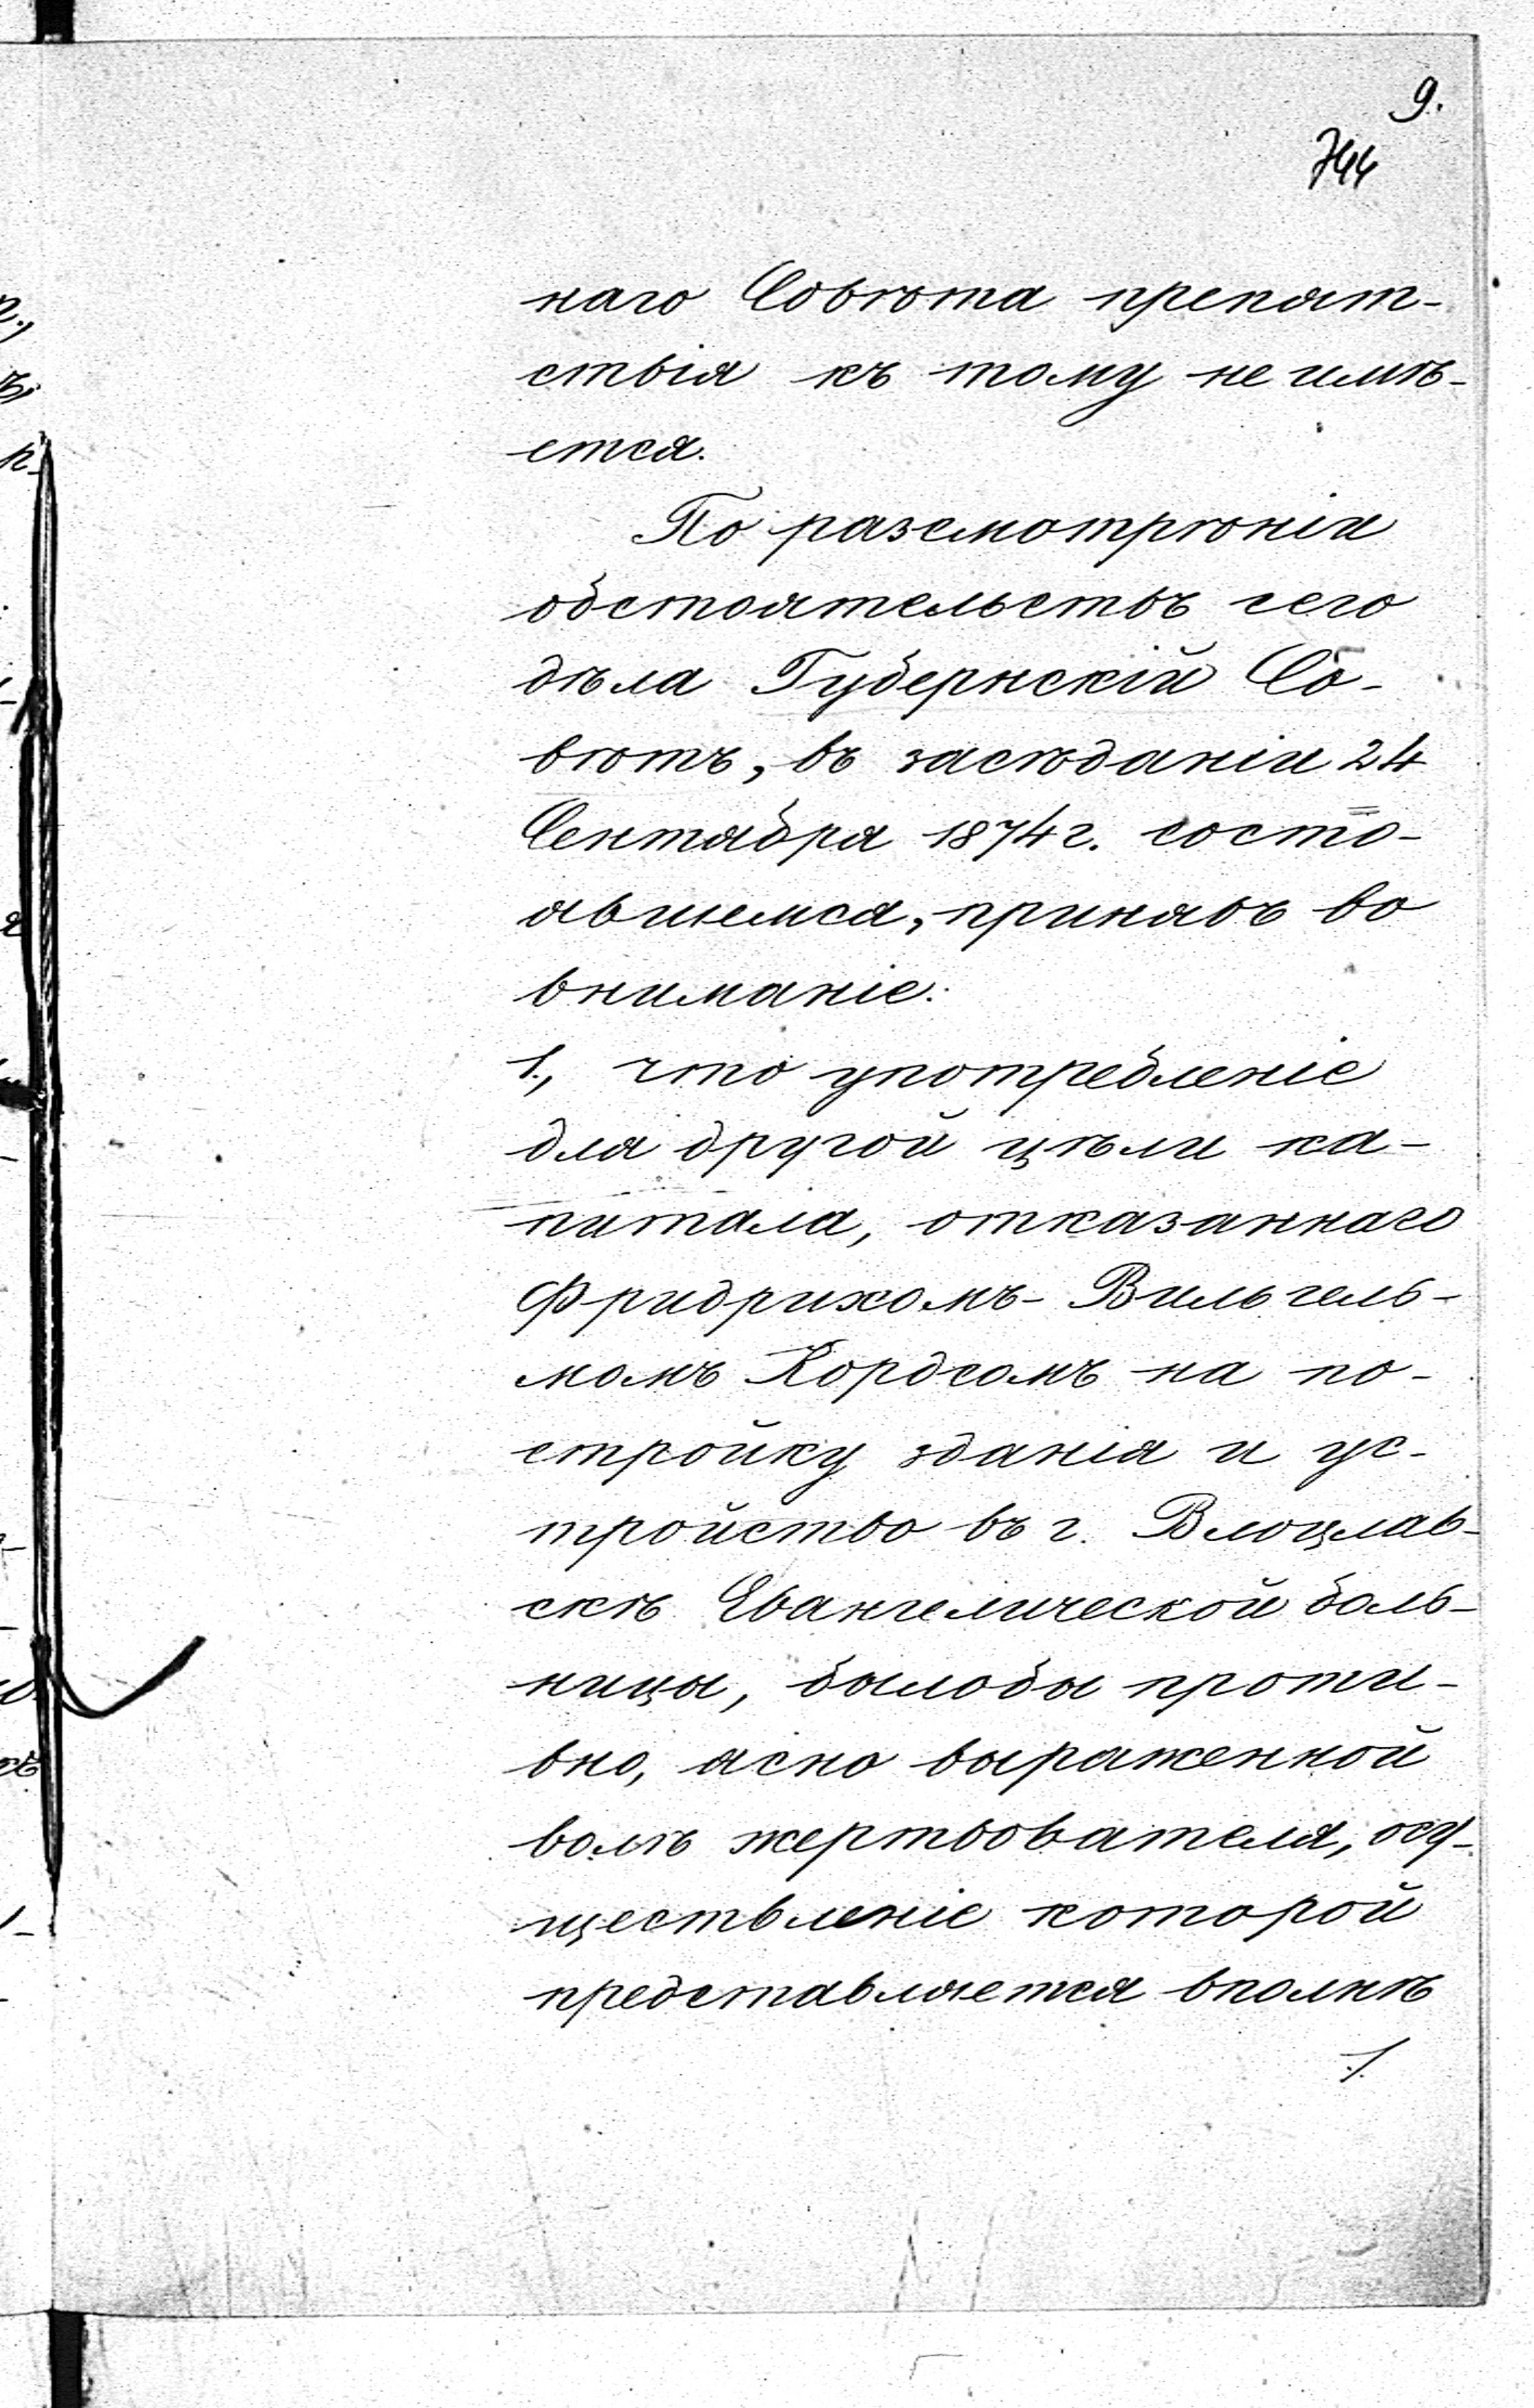 9.
744
наго Совѣта препят-
ствія къ тому не имѣ-
ется.
По разсмотрѣніи
обстоятельствъ сего
дѣла Губернскій Со-
вѣтъ, въ засѣданіи 24
Сентября 1874 г. состо-
явшемся, принявъ во
вниманіе:
1., что употребленіе
для другой цѣли ка-
питала, отказаннаго
Фридрихомъ-Вильгель-
момъ Кордсомъ на по-
стройку зданія и ус-
тройство въ г. Влоцлав-
скѣ Евангелической боль-
ницы, былобы проти-
вно, ясно выраженной
волѣ жертвователя, осу-
ществленіе которой
представляется вполнѣ
./.